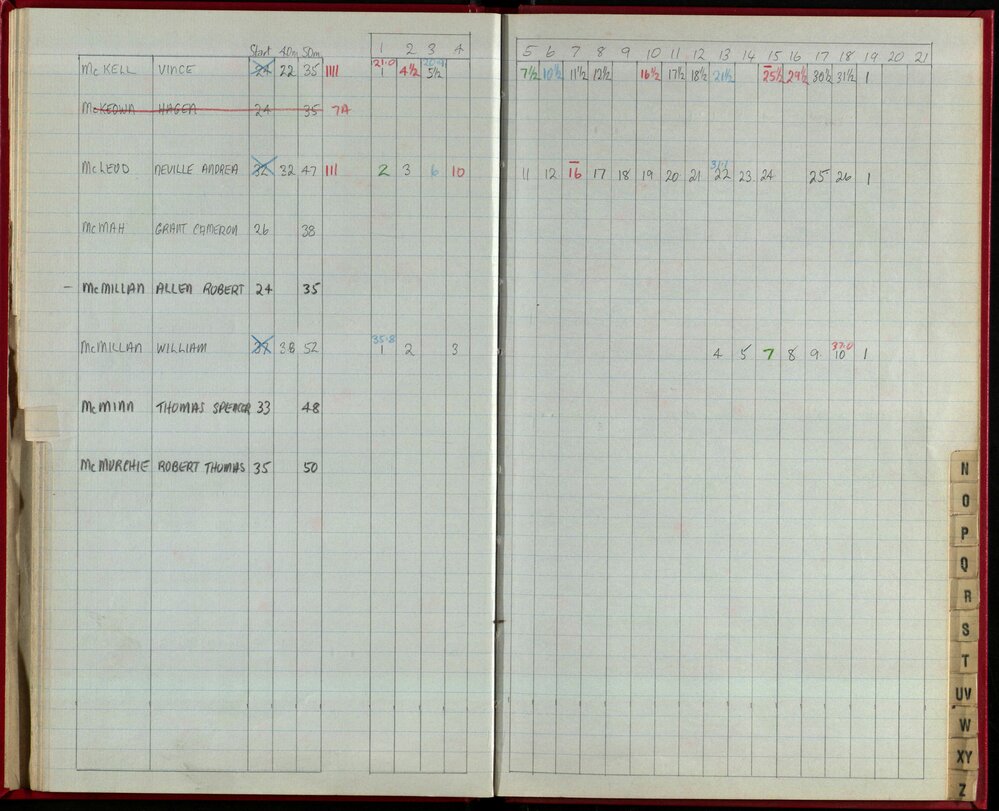 Start 40m 50m 1 2 3 4 5 6 7 8 9 10 11 12 13 14 15 16 17 18 19 20 21
21.0
McKELL VINCE 24 22 35 IIII 1 4½ 5½ 7½ 10½ 11½ 12½ 16½ 17½ 18½ 21½ 25½ 29½ 30½ 31½ 1
McKEOWN HAGEN 24 35 7A
31.1
McLEOD NEVILLE ANDREA 32 32 47 III 2 3 6 10 11 12 16 17 18 19 20 21 22 23 24 25 26 1
McMAH GRANT CAMERON 26 38
– McMILLAN ALLEN ROBERT 24 35
35.8 37.0
McMILLAN WILLIAM 37 38 52 1 2 3 4 5 7 8 9 10 1
McMINN THOMAS SPENCER 33 48
McMURCHIE ROBERT THOMAS 35 50
N
O
P
Q
R
S
T
UV
W
XY
Z